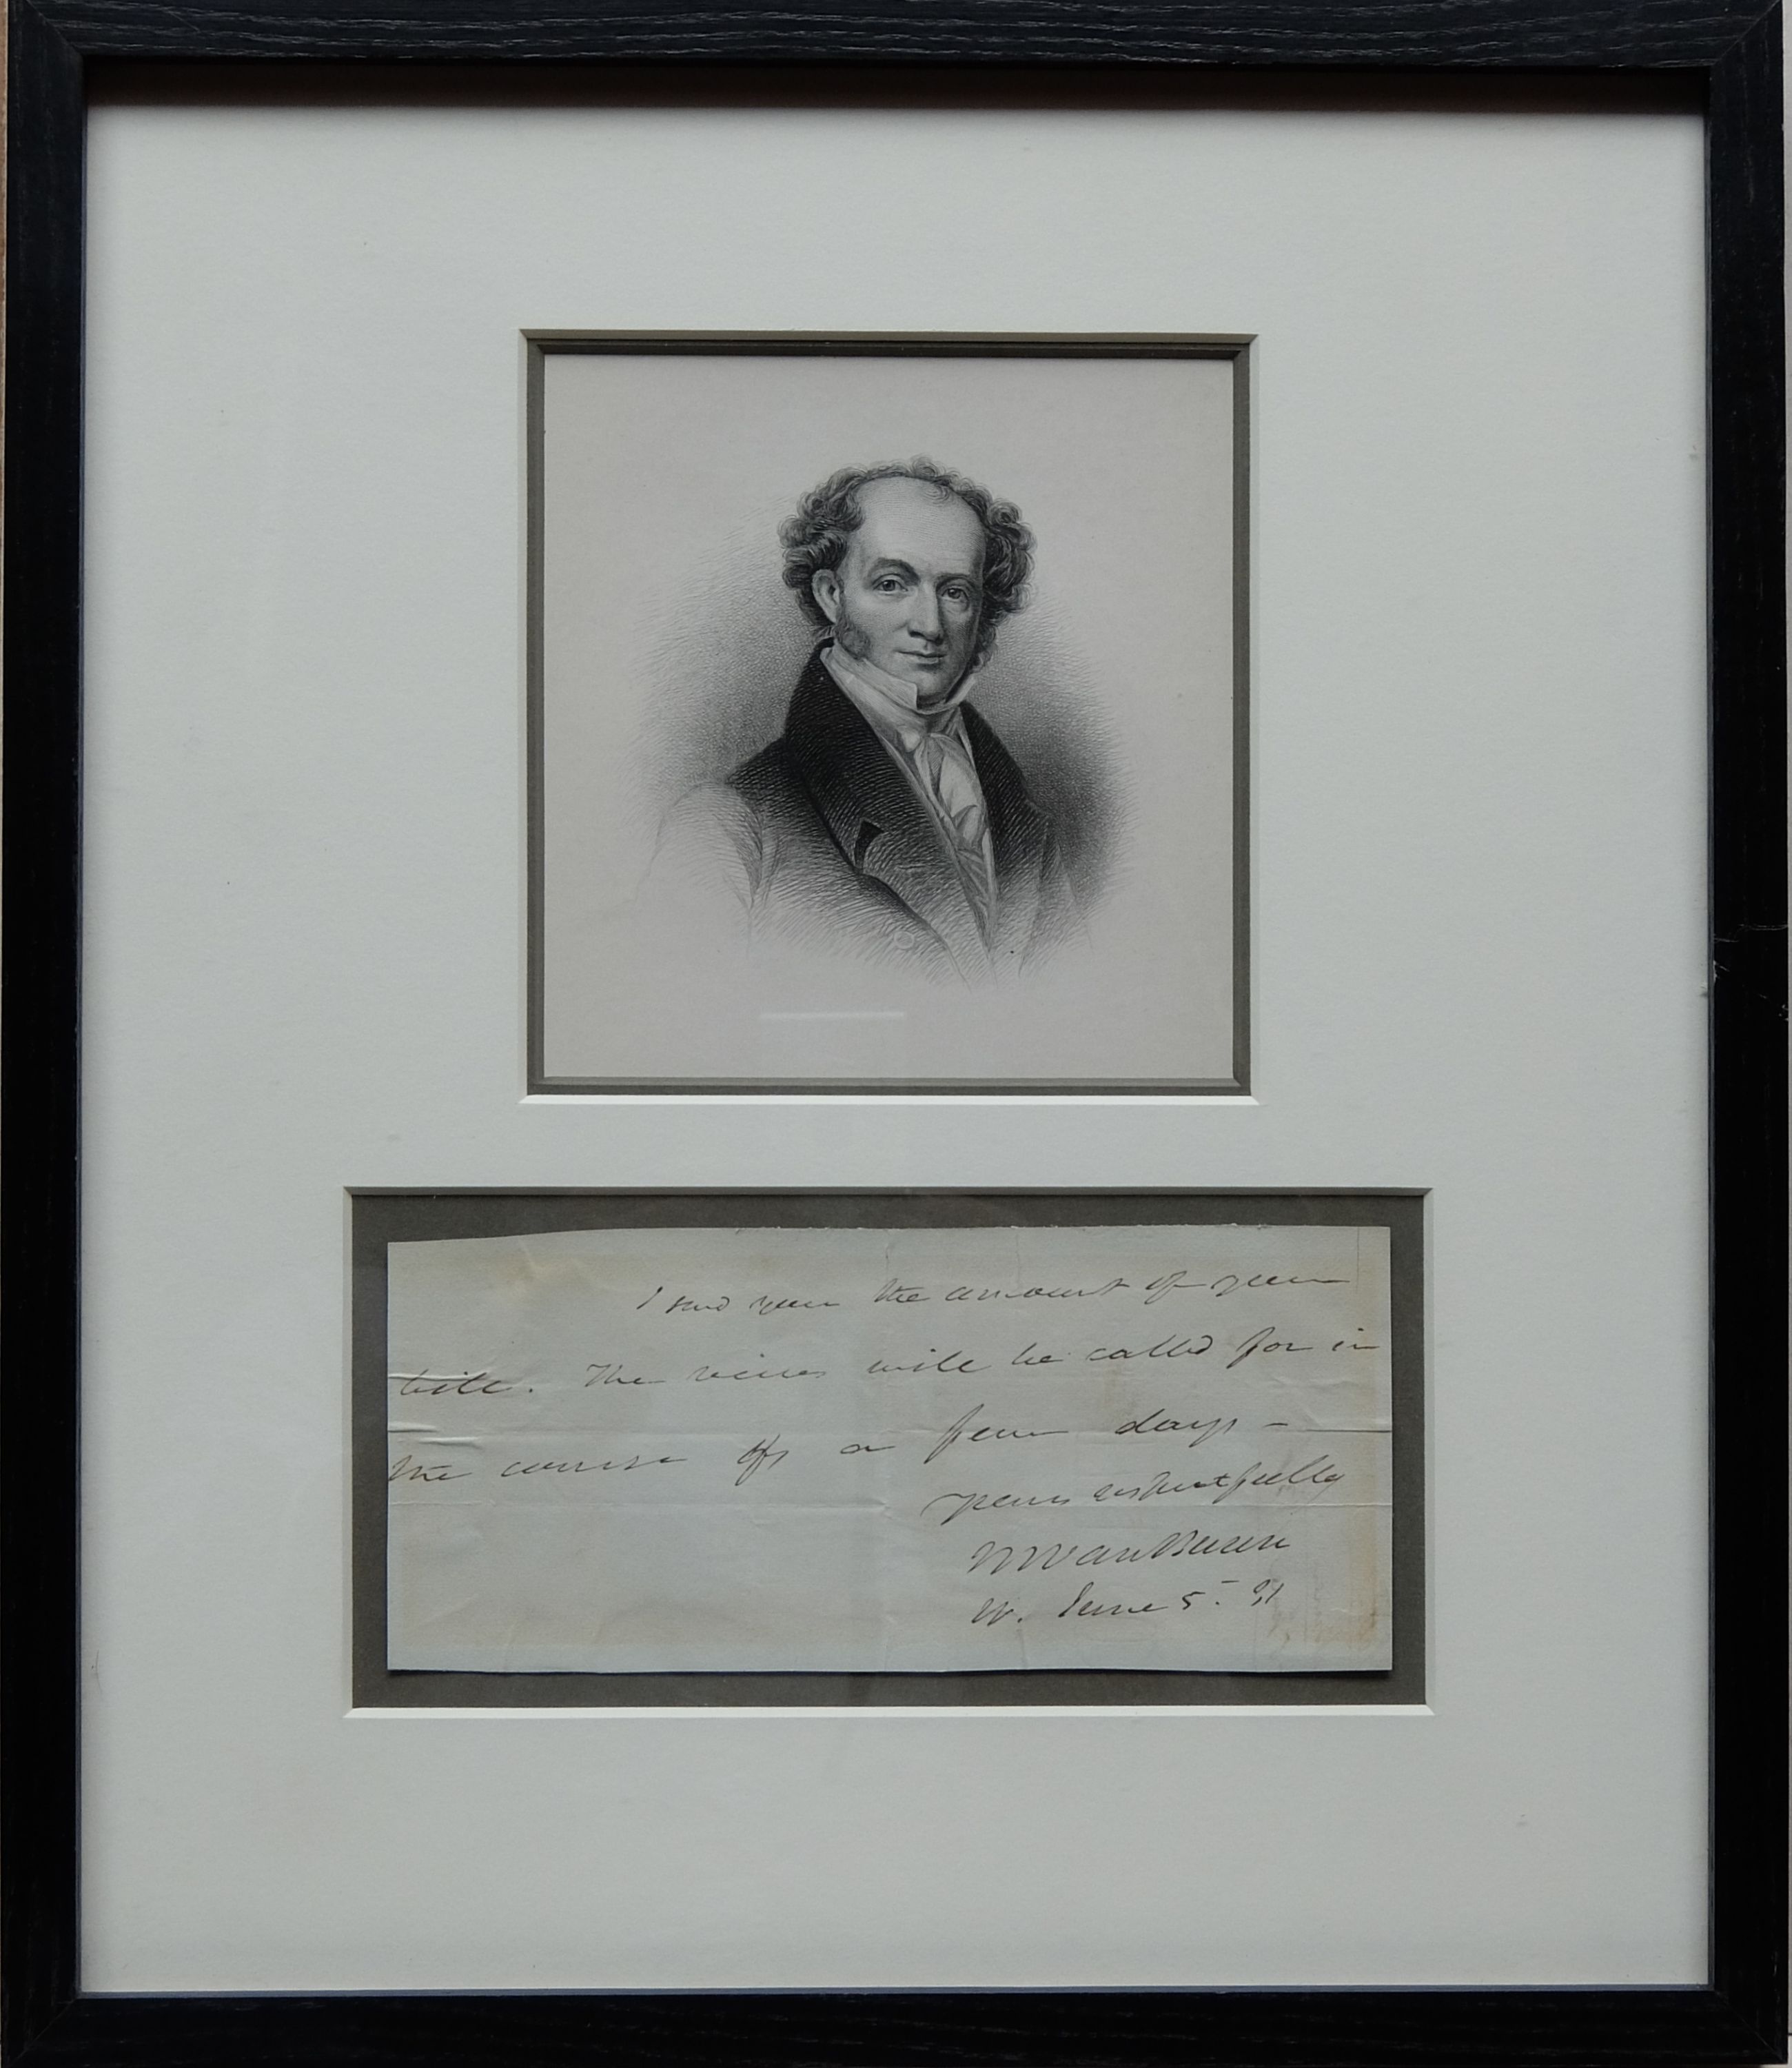 I send you the amount of your
bill. The wines will be called for in
the course of a few days -
yours respectfully
MVanBuren
W. June 5. 31